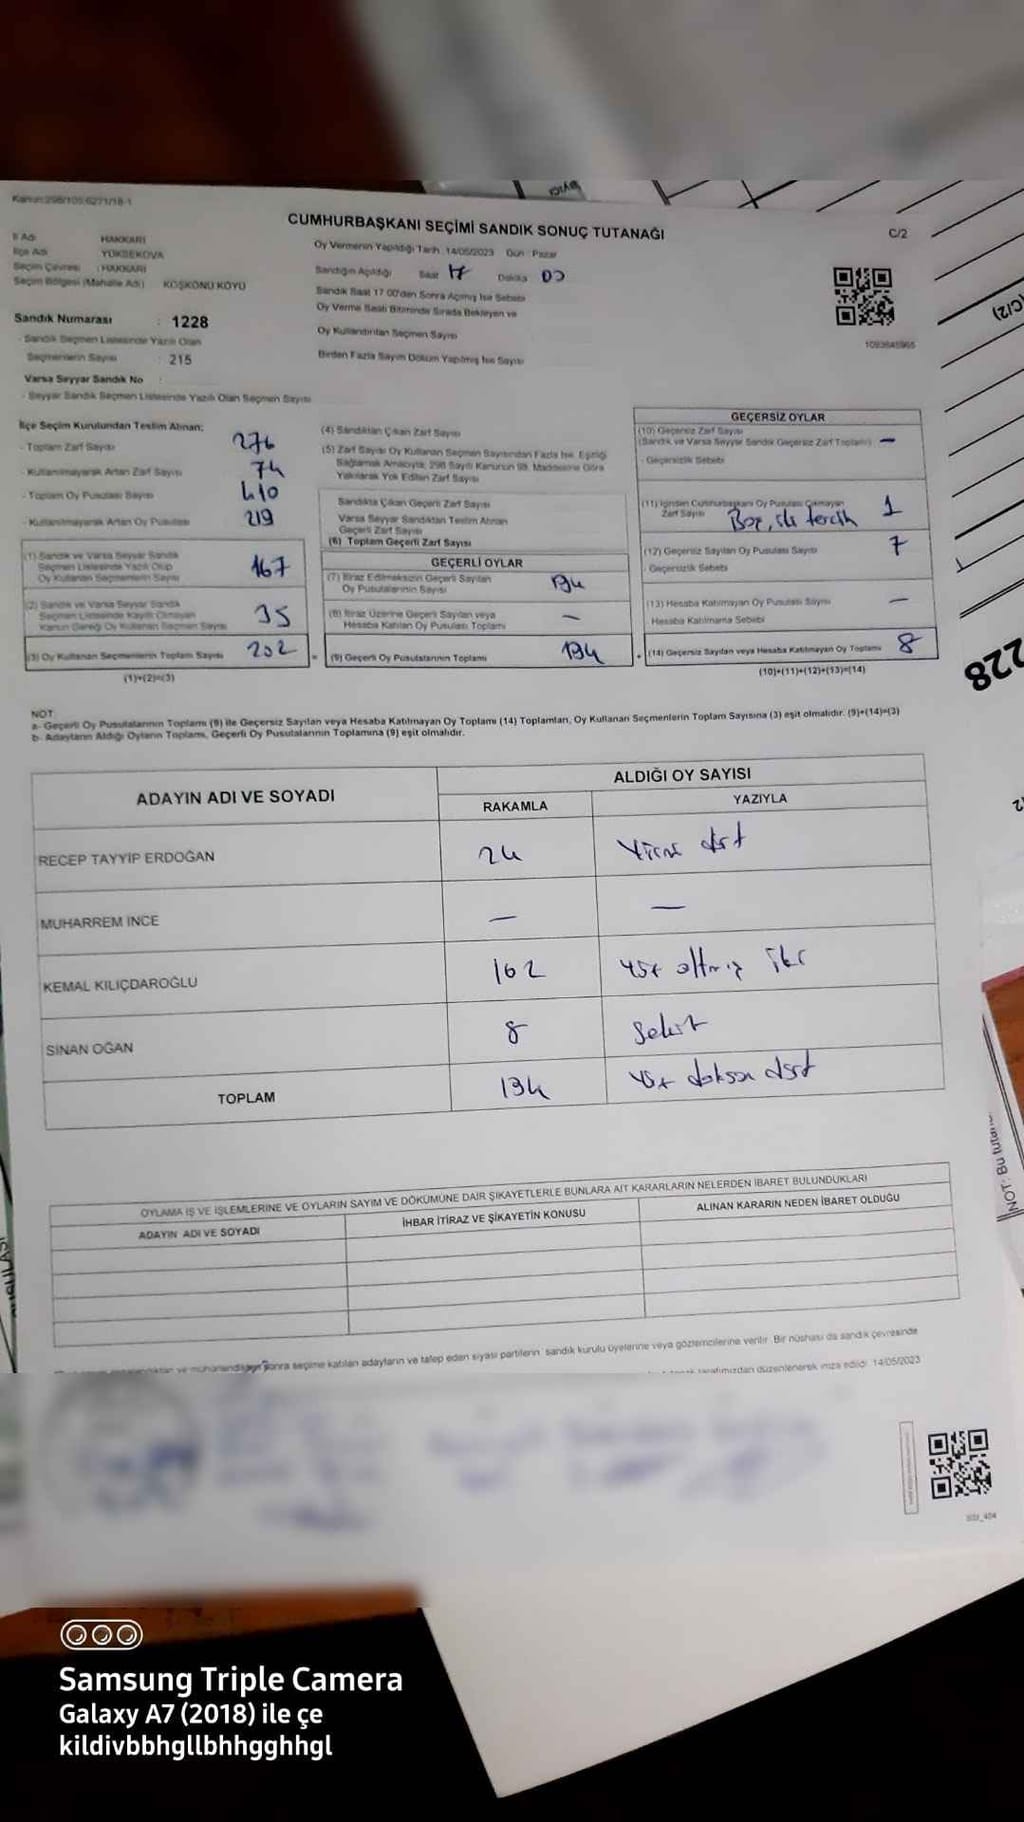 Kanun:298/105;6271/18-1
CUMHURBAŞKANI SEÇİMİ SANDIK SONUÇ TUTANAĞI
C/2
İl Adı : HAKKARİ
İlçe Adı : YÜKSEKOVA
Seçim Çevresi : HAKKARİ
Seçim Bölgesi (Mahalle Adı) KÖŞKÖNÜ KÖYÜ
Sandık Numarası : 1228
- Sandık Seçmen Listesinde Yazılı Olan
Seçmenlerin Sayısı : 215
Varsa Seyyar Sandık No :
- Seyyar Sandık Seçmen Listesinde Yazılı Olan Seçmen Sayısı
Oy Vermenin Yapıldığı Tarih :14/05/2023 Gün : Pazar
Sandığın Açıldığı Saat 17 Dakika 00
Sandık Saat 17.00'den Sonra Açılmış İse Sebebi
Oy Verme Saati Bitiminde Sırada Bekleyen ve
Oy Kullandırılan Seçmen Sayısı
Birden Fazla Sayım Döküm Yapılmış İse Sayısı
1093645965
İlçe Seçim Kurulundan Teslim Alınan;
- Toplam Zarf Sayısı 276
- Kullanılmayarak Artan Zarf Sayısı 74
- Toplam Oy Pusulası Sayısı 410
- Kullanılmayarak Artan Oy Pusulası 219
(1) Sandık ve Varsa Seyyar Sandık
Seçmen Listesinde Yazılı Olup
Oy Kullanan Seçmenlerin Sayısı 167
(2) Sandık ve Varsa Seyyar Sandık
Seçmen Listesinde Kayıtlı Olmayan
Kanun Gereği Oy Kullanan Seçmen Sayısı 35
(3) Oy Kullanan Seçmenlerin Toplam Sayısı 202
(1)+(2)=(3)
(4) Sandıktan Çıkan Zarf Sayısı
(5) Zarf Sayısı Oy Kullanan Seçmen Sayısından Fazla İse, Eşitliği
Sağlamak Amacıyla; 298 Sayılı Kanunun 98. Maddesine Göre
Yakılarak Yok Edilen Zarf Sayısı
Sandıkta Çıkan Geçerli Zarf Sayısı
Varsa Seyyar Sandıktan Teslim Alınan
Geçerli Zarf Sayısı
(6) Toplam Geçerli Zarf Sayısı
GEÇERLİ OYLAR
(7) İtiraz Edilmeksizin Geçerli Sayılan
Oy Pusulalarının Sayısı 194
(8) İtiraz Üzerine Geçerli Sayılan veya
Hesaba Katılan Oy Pusulası Toplamı —
(9) Geçerli Oy Pusulalarının Toplamı 194
GEÇERSİZ OYLAR
(10) Geçersiz Zarf Sayısı
(Sandık ve Varsa Seyyar Sandık Geçersiz Zarf Toplamı) —
- Geçersizlik Sebebi
(11) İçinden Cumhurbaşkanı Oy Pusulası Çıkmayan
Zarf Sayısı Boş, iki tercih 1
(12) Geçersiz Sayılan Oy Pusulası Sayısı 7
- Geçersizlik Sebebi
(13) Hesaba Katılmayan Oy Pusulası Sayısı —
Hesaba Katılmama Sebebi
(14) Geçersiz Sayılan veya Hesaba Katılmayan Oy Toplamı 8
(10)+(11)+(12)+(13)=(14)
NOT:
a- Geçerli Oy Pusulalarının Toplamı (9) ile Geçersiz Sayılan veya Hesaba Katılmayan Oy Toplamı (14) Toplamları, Oy Kullanan Seçmenlerin Toplam Sayısına (3) eşit olmalıdır. (9)+(14)=(3)
b- Adayların Aldığı Oyların Toplamı, Geçerli Oy Pusulalarının Toplamına (9) eşit olmalıdır.
ADAYIN ADI VE SOYADI
ALDIĞI OY SAYISI
RAKAMLA YAZIYLA
RECEP TAYYİP ERDOĞAN 24 Yirmi dört
MUHARREM İNCE — —
KEMAL KILIÇDAROĞLU 162 Yüz altmış iki
SİNAN OĞAN 8 Sekiz
TOPLAM 194 Yüz doksan dört
OYLAMA İŞ VE İŞLEMLERİNE VE OYLARIN SAYIM VE DÖKÜMÜNE DAİR ŞİKAYETLERLE BUNLARA AİT KARARLARIN NELERDEN İBARET BULUNDUKLARI
ADAYIN ADI VE SOYADI
İHBAR İTİRAZ VE ŞİKAYETİN KONUSU
ALINAN KARARIN NEDEN İBARET OLDUĞU
sonra seçime katılan adayların ve talep eden siyasi partilerin sandık kurulu üyelerine veya gözlemcilerine verilir. Bir nüshası da sandık çevresinde
tarafımızdan düzenlenerek imza edildi. 14/05/2023
228
(C/2)
NOT: Bu
Samsung Triple Camera
Galaxy A7 (2018) ile çe
kildivbbhgllbhhgghhgl